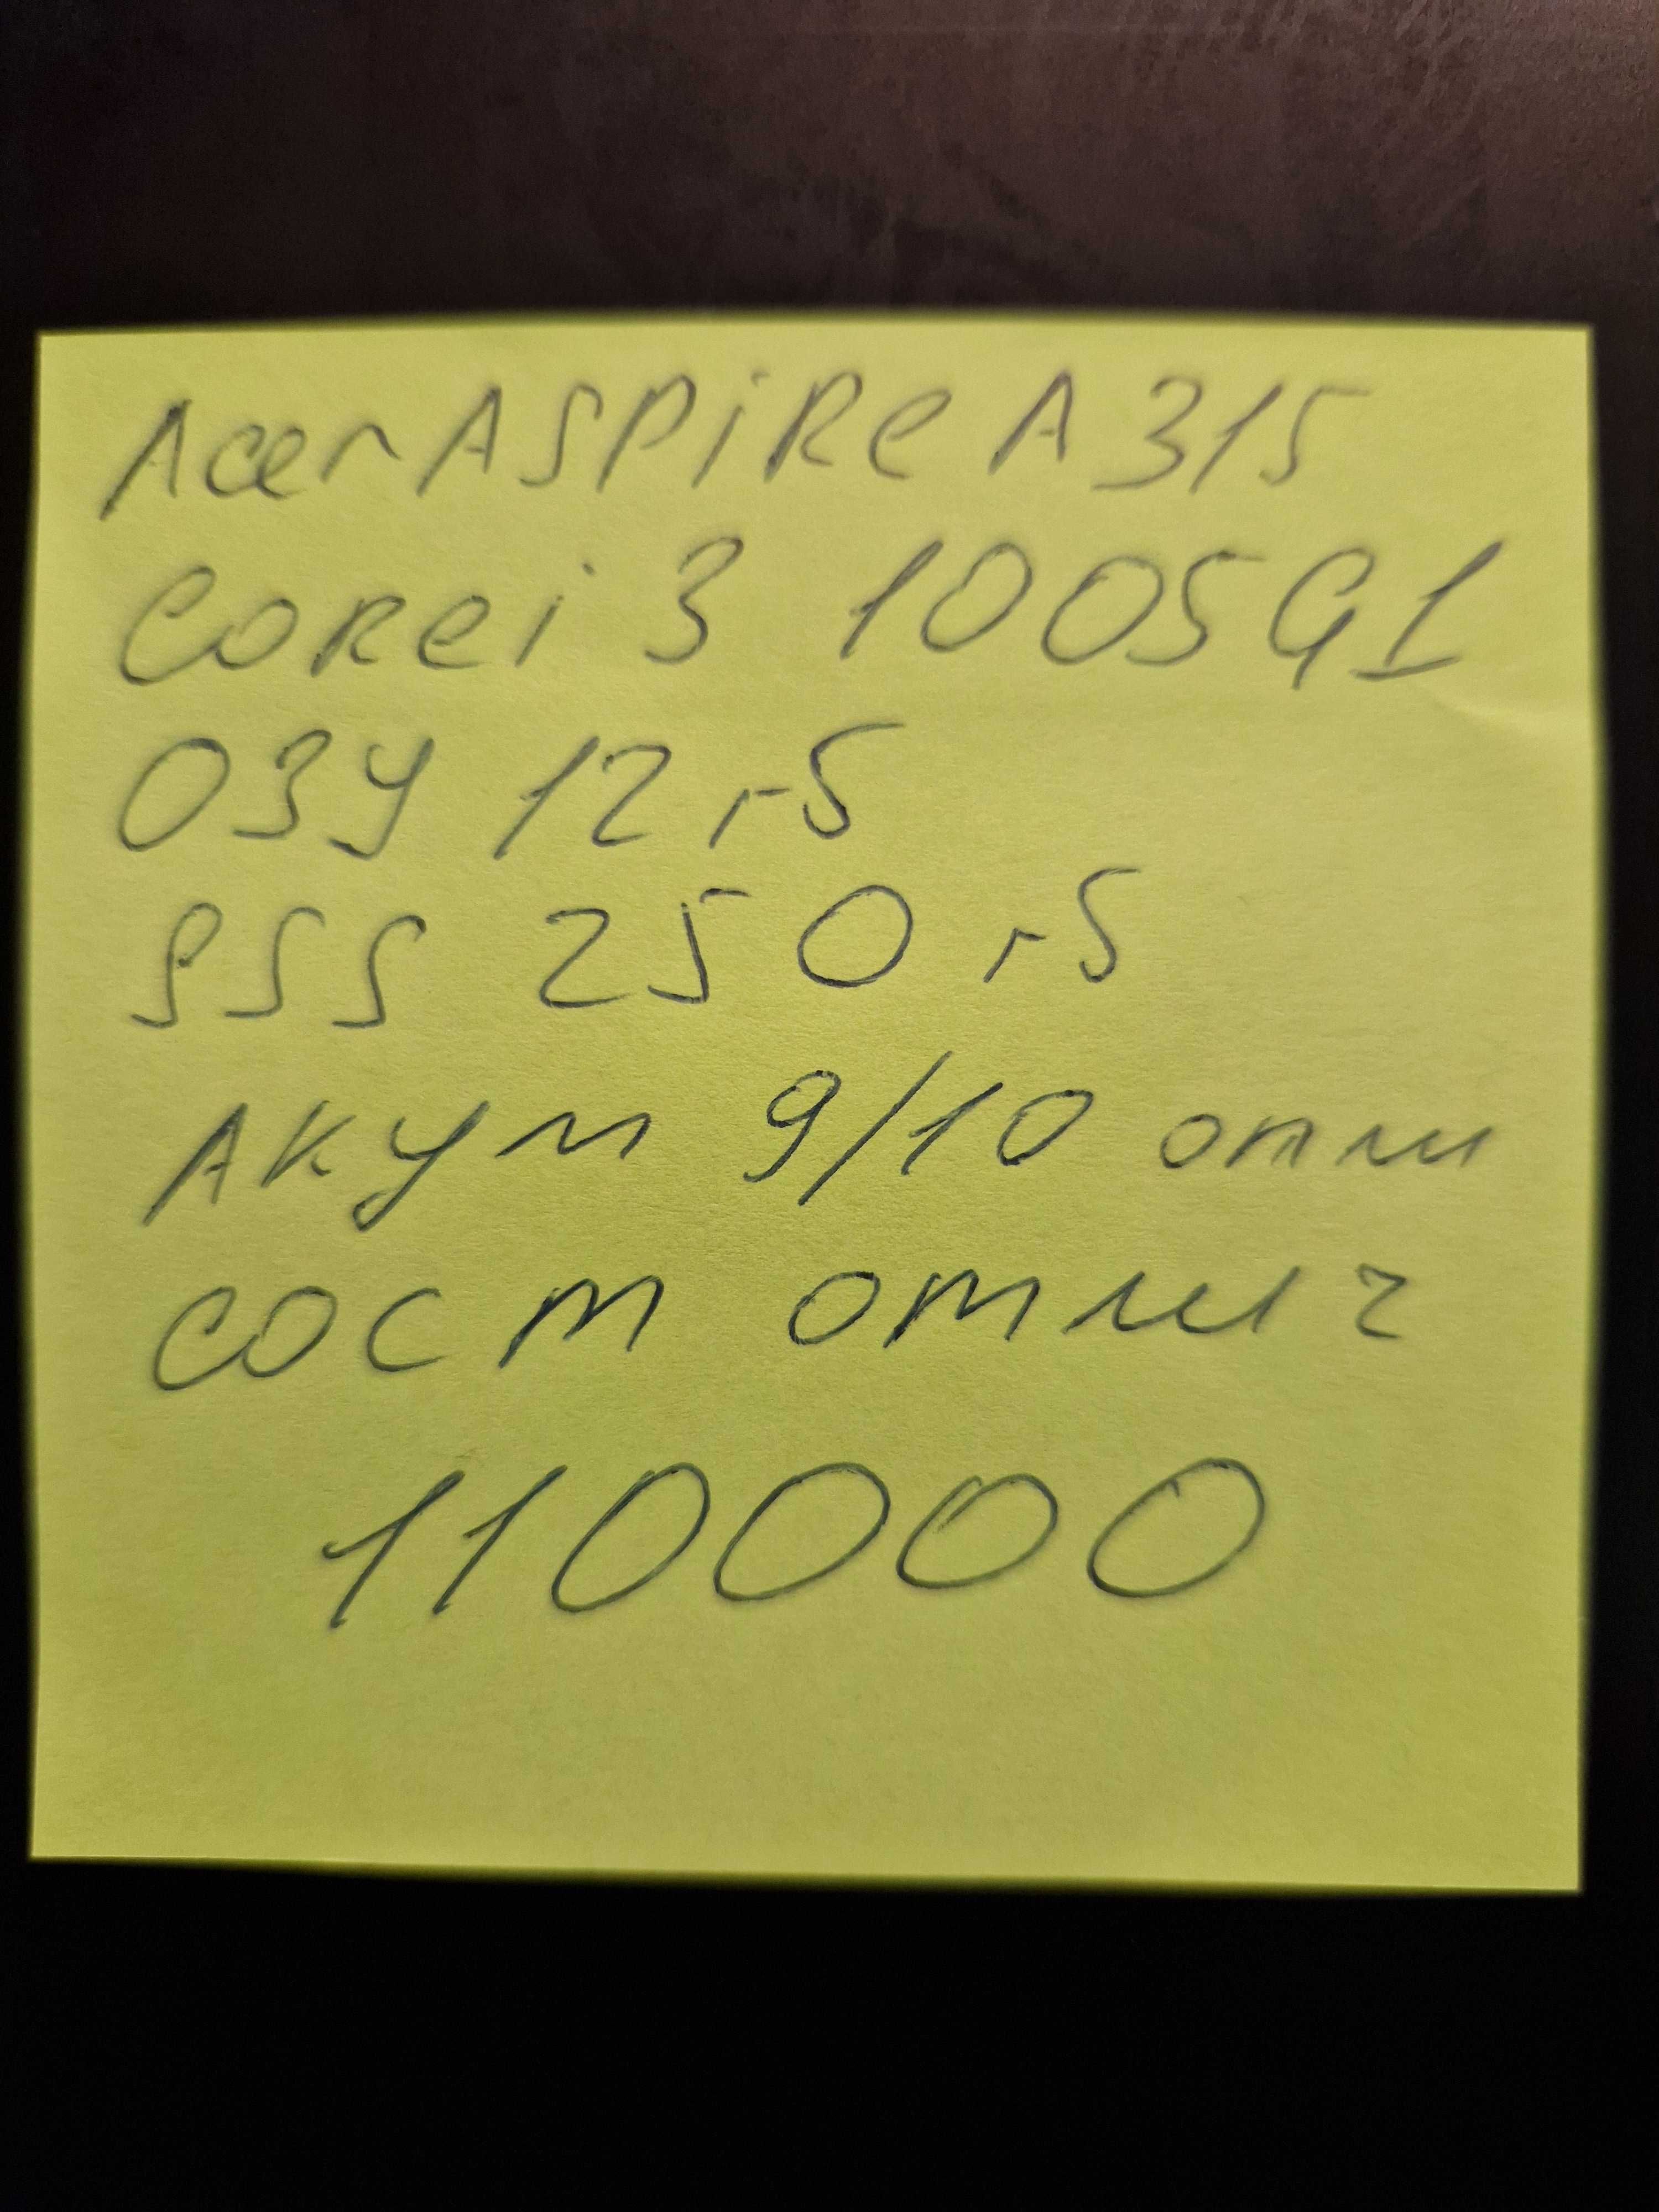 Acer ASPiRe A 315
Core i 3 1005G1
ОЗУ 12 гб
SSS 250 гб
Акум 9/10 отли
сост отлич
110000